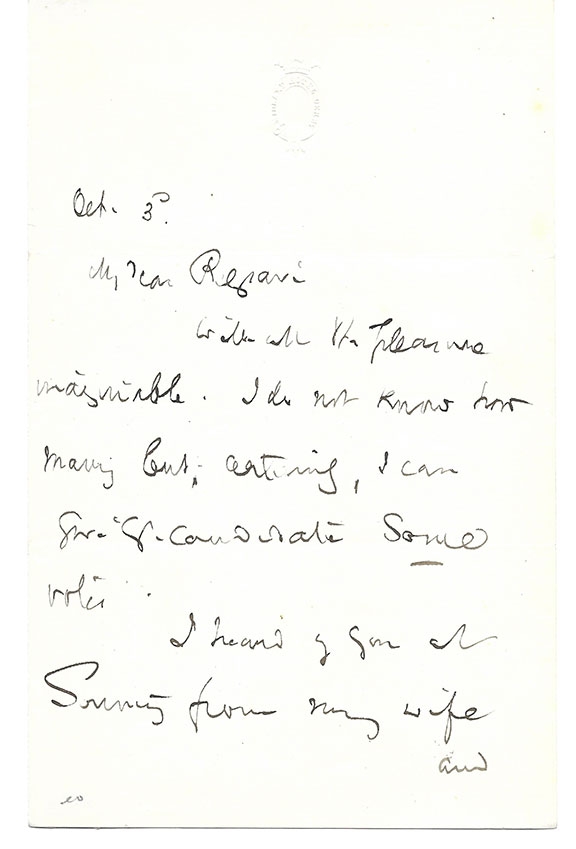 Oct. 3d.
My dear
With all the pleasure
imaginable. I do not know how
many but, certainly, I can
give yr. candidate some
votes.
I heard of you at
from my wife
and